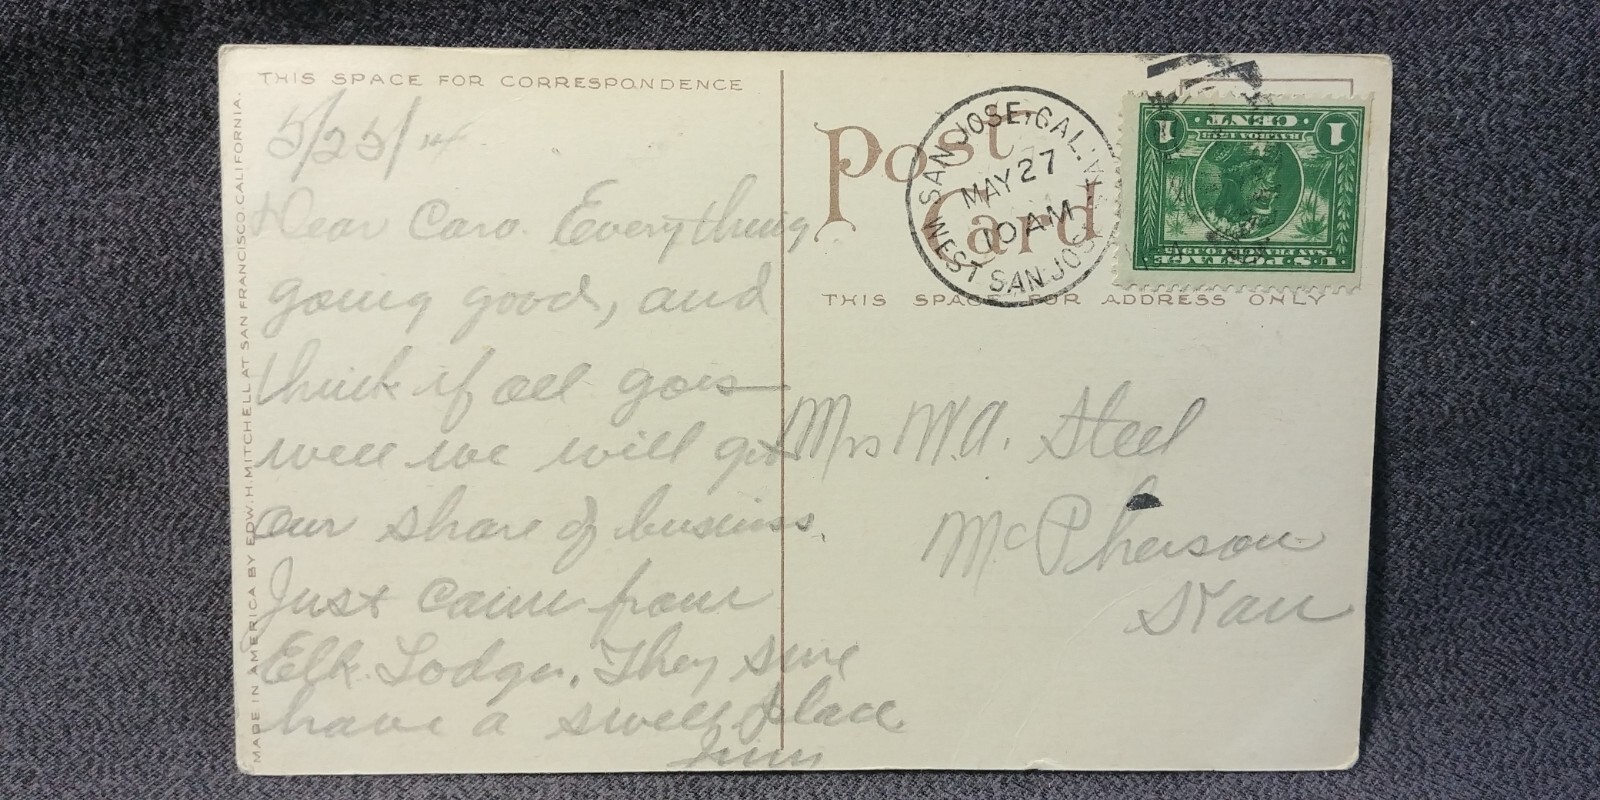 THIS SPACE FOR CORRESPONDENCE
5/25/14
Dear Caro. Everything
going good, and
think if all goes
well we will get
our share of business.
Just came from
Elk Lodge. They sure
have a swell place
Jim
MADE IN AMERICA BY EDW. H. MITCHELL AT SAN FRANCISCO. CALIFORNIA.
Post Card
SAN JOSE, CAL.
MAY 27
10 AM
WEST SAN JOSE
U.S. POSTAGE
SAN FRANCISCO 1915
BALBOA 1513
1 CENT 1
THIS SPACE FOR ADDRESS ONLY
Mrs W.A. Steel
McPherson
Kan